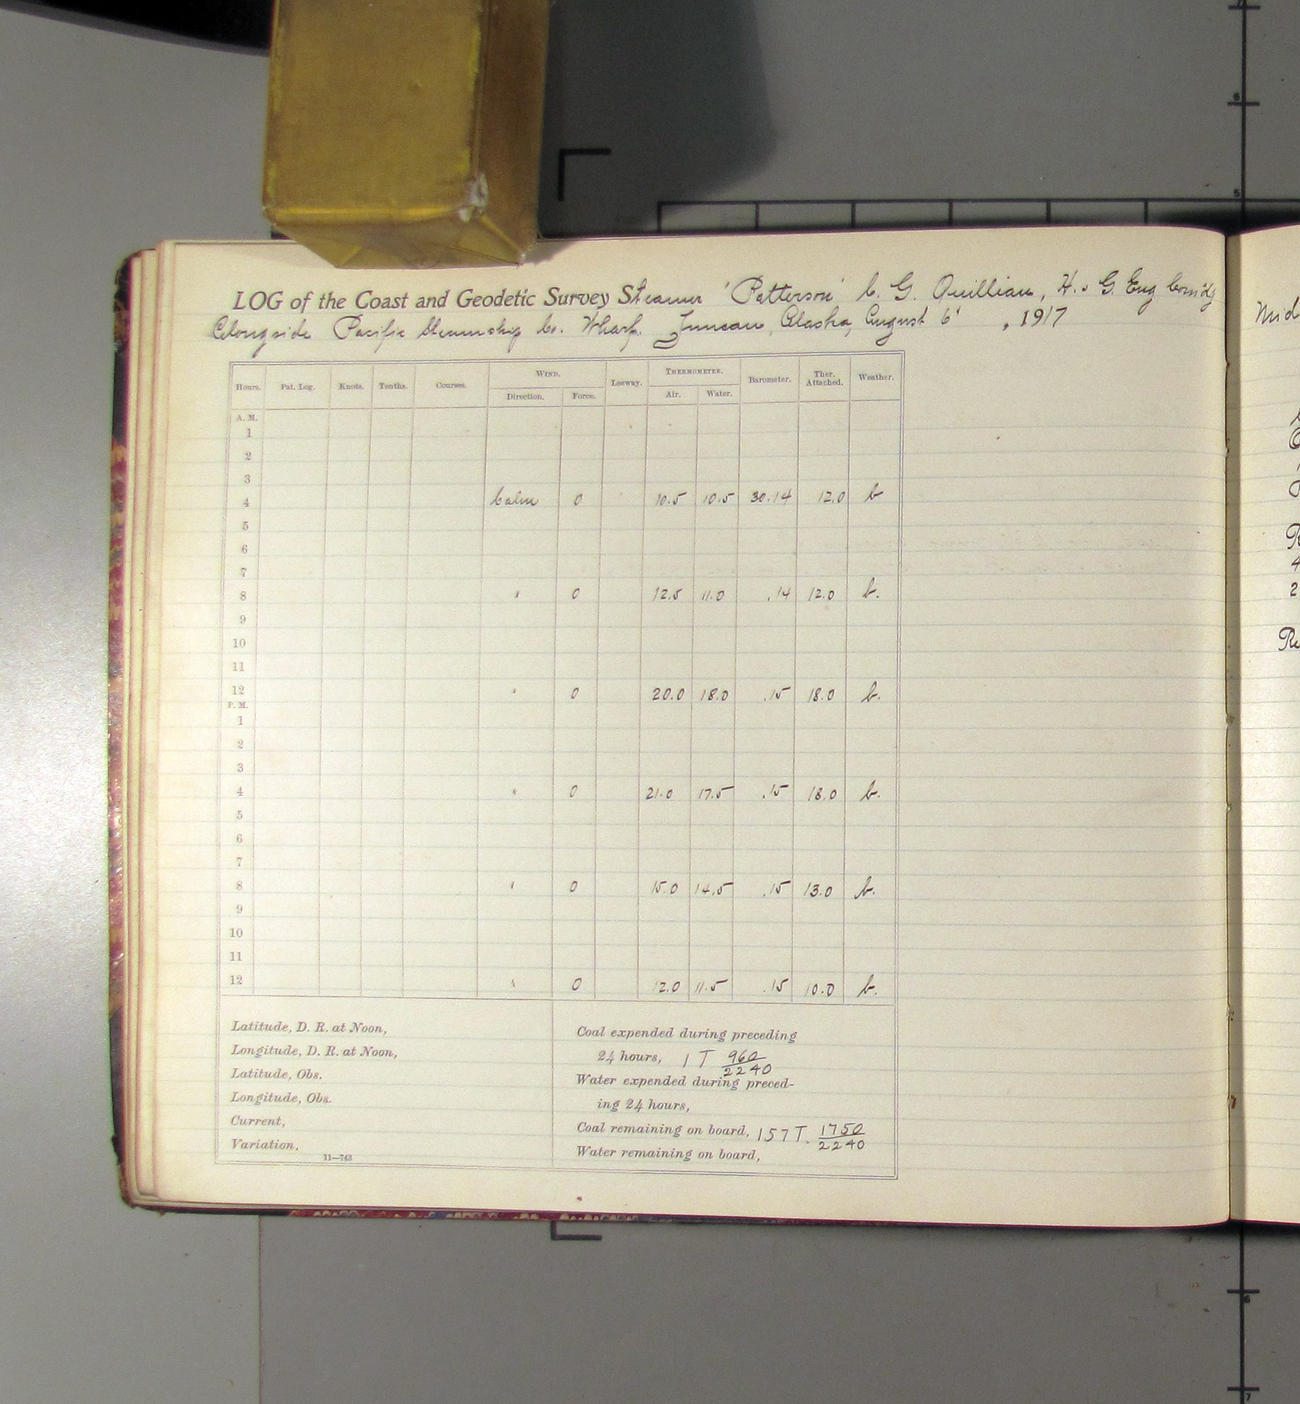 LOG of the Coast and Geodetic Survey Steamer 'Patterson' C. G. Quillian, H. & G. Eng Comd'g
Alongside Pacific Steamship Co. Wharf. Juneau, Alaska, August 6', 1917
Hours. Pat. Log. Knots. Tenths. Courses. WIND. Leeway. THERMOMETER. Barometer. Ther. Attached. Weather.
Direction. Force. Air. Water.
A. M.
1
2
3
4 Calm 0 10.5 10.5 30.14 12.0 b
5
6
7
8 " 0 12.5 11.0 .14 12.0 b.
9
10
11
12 " 0 20.0 18.0 .15 18.0 b.
P. M.
1
2
3
4 " 0 21.0 17.5 .15 18.0 b.
5
6
7
8 " 0 15.0 14.5 .15 13.0 b.
9
10
11
12 " 0 12.0 11.5 .15 10.0 b.
Latitude, D. R. at Noon,
Longitude, D. R. at Noon,
Latitude, Obs.
Longitude, Obs.
Current,
Variation,
11—743
Coal expended during preceding
24 hours, 1 T 960/2240
Water expended during preced-
ing 24 hours,
Coal remaining on board, 157 T. 1750/2240
Water remaining on board,